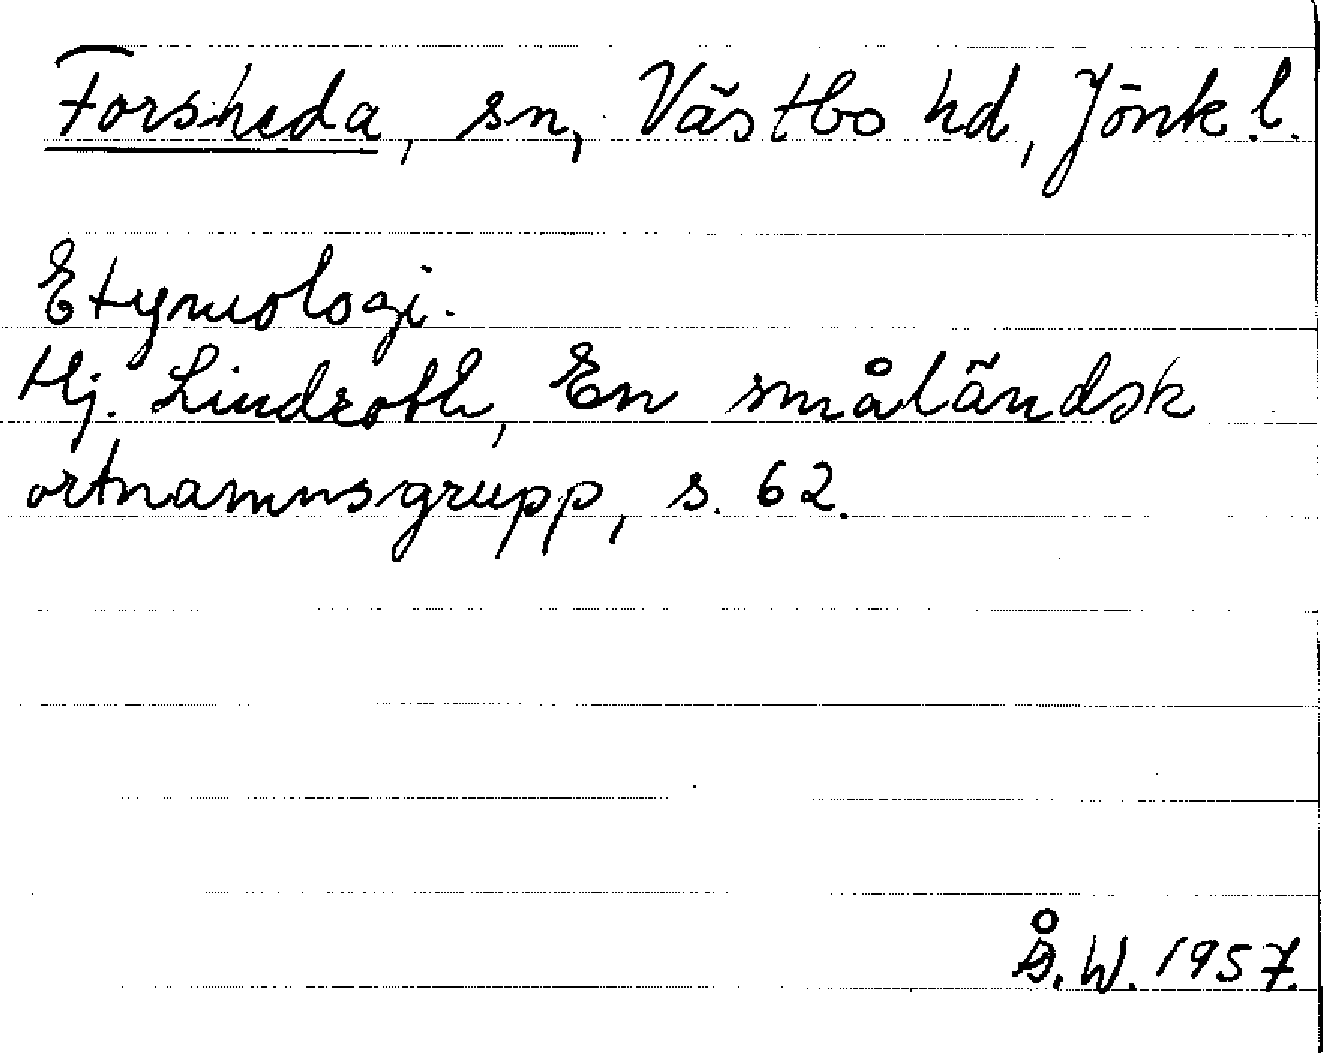 Forsheda, sn, Västbo hd, Jönk. l.
Etymologi.
Hj. Lindroth, En småländsk
ortnamnsgrupp, s. 62.
Å. W. 1957.